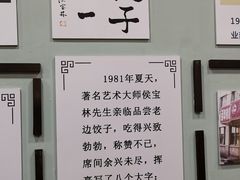 子
一
1981年夏天，
著名艺术大师侯宝
林先生亲临品尝老
边饺子，吃得兴致
勃勃，称赞不已，
席间余兴未尽，挥
毫写了八个大字：